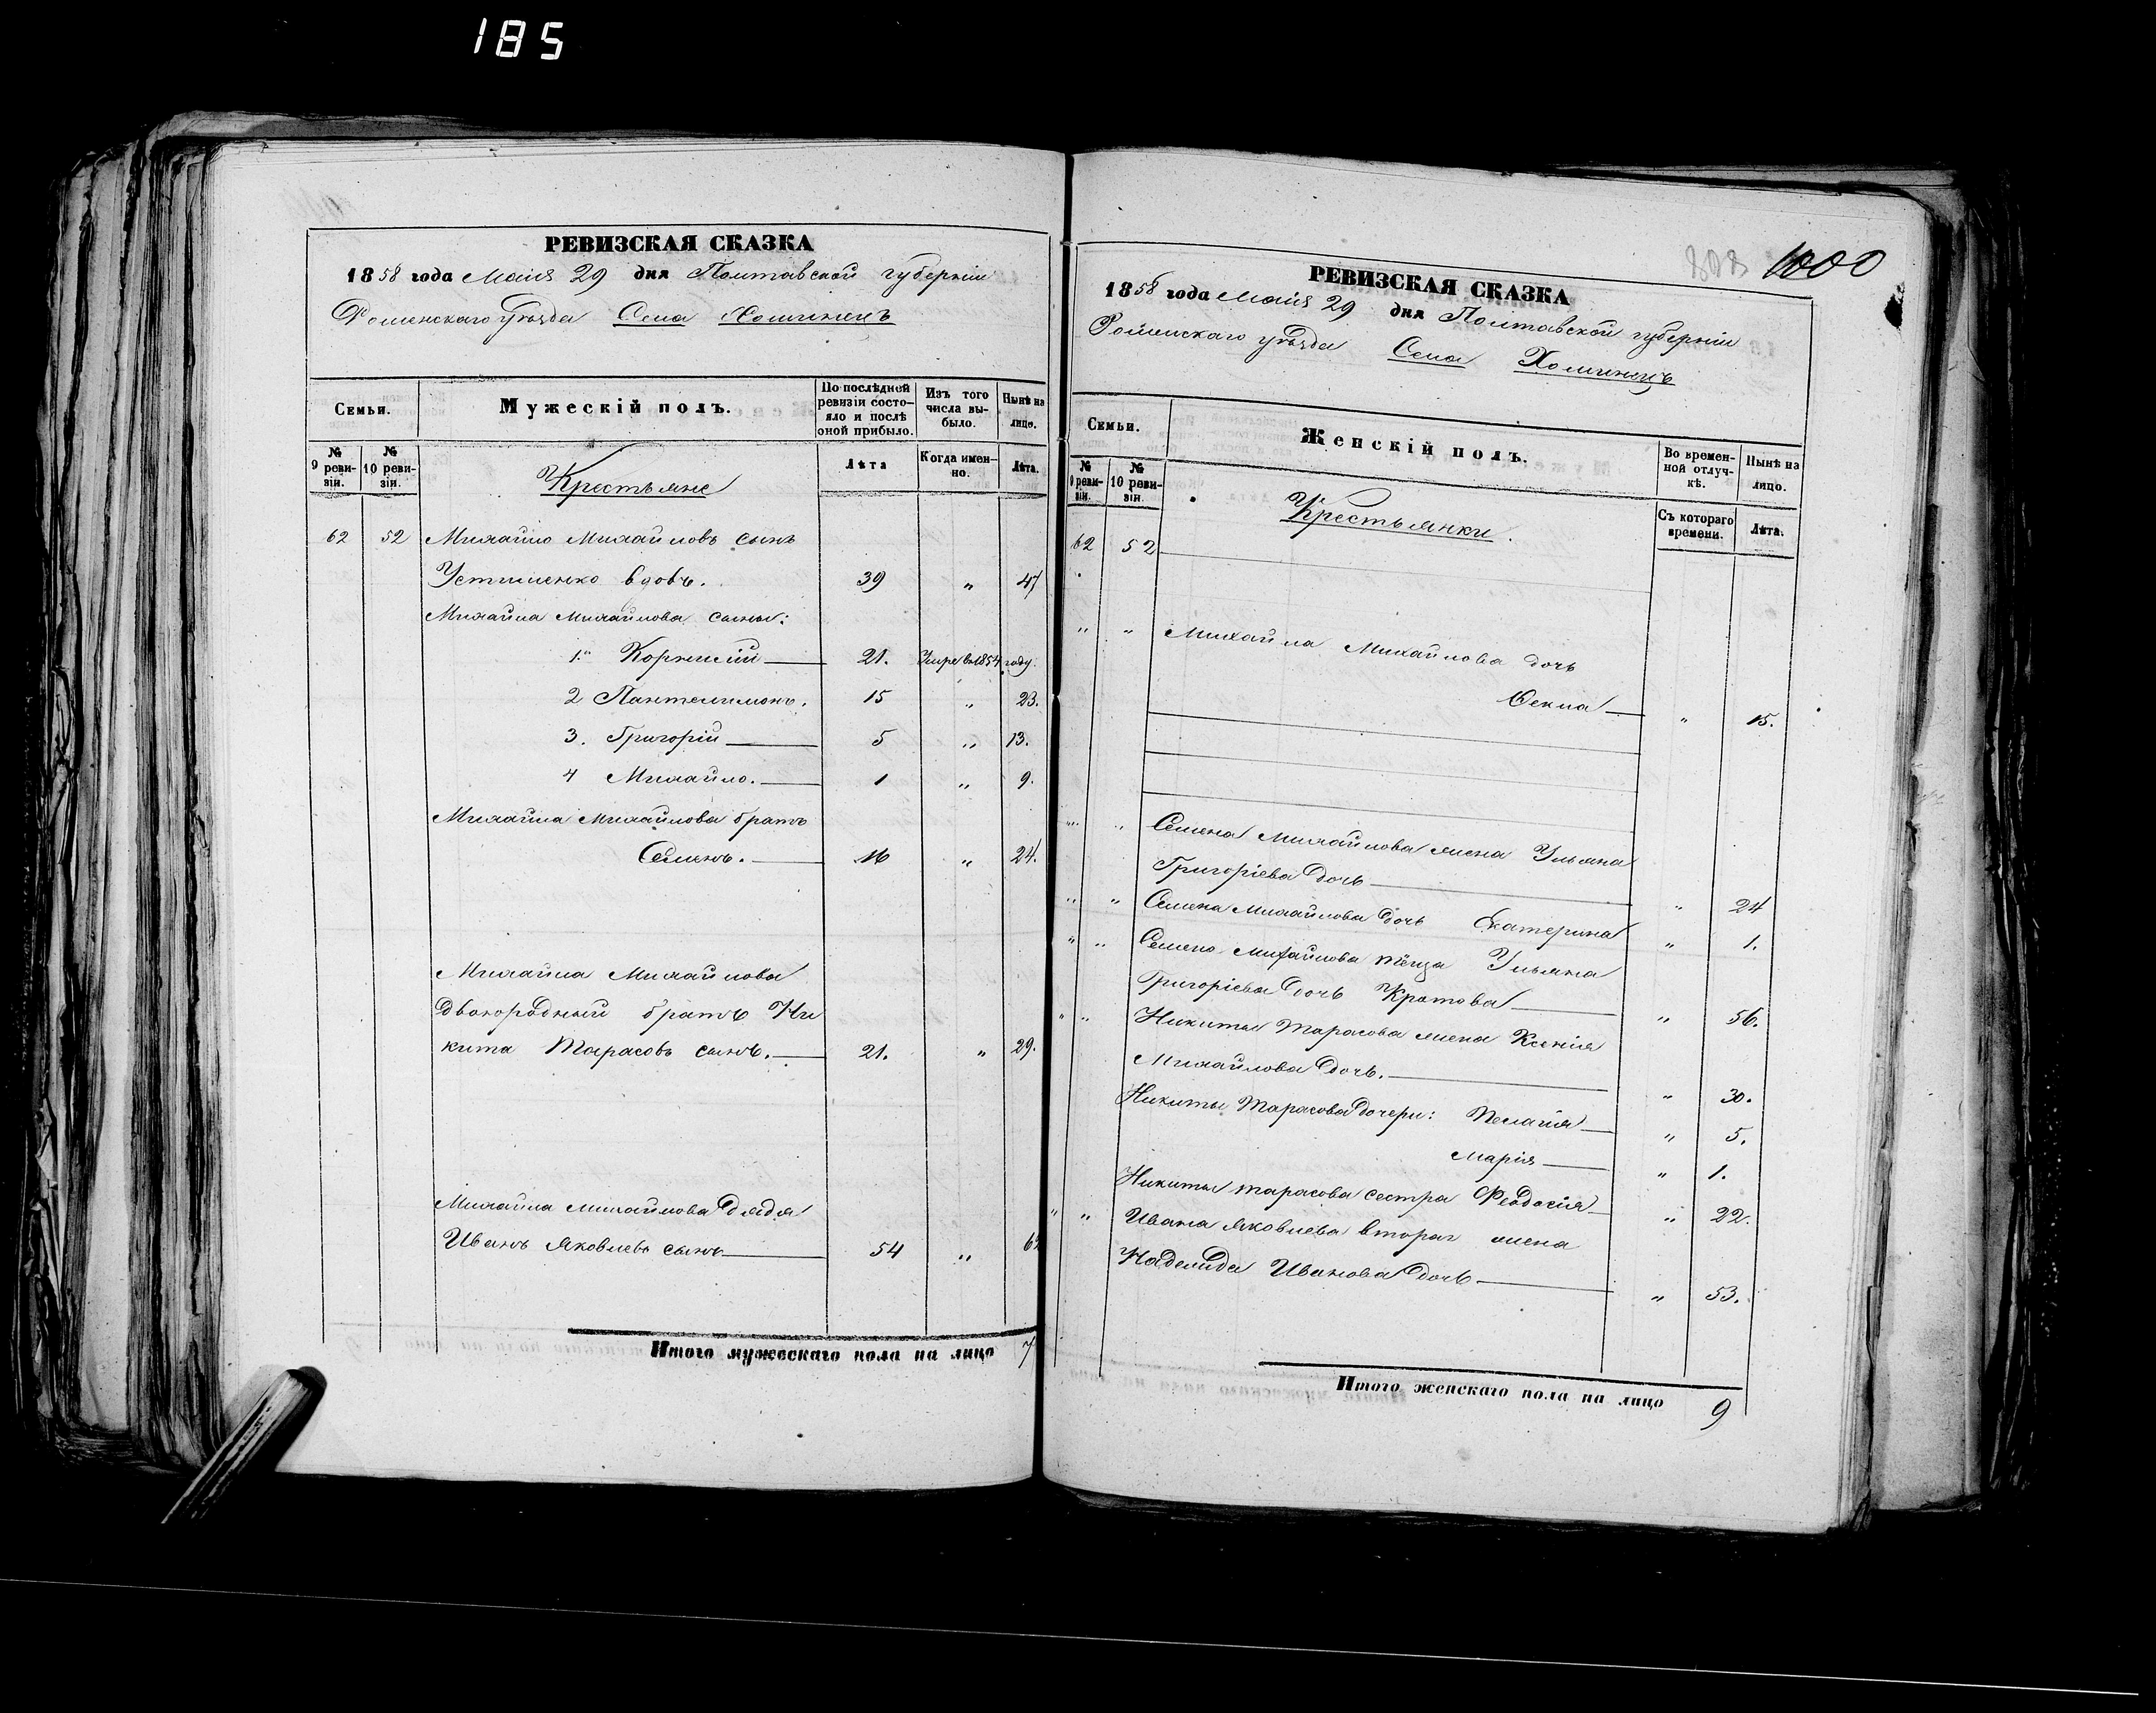 185
РЕВИЗСКАЯ СКАЗКА
1858 года Маія 29 дня Полтавской губерніи
Роменскаго уѣзда Села Хоминецъ
Семьи.
Мужескій полъ.
По послѣдней ревизіи состояло и послѣ оной прибыло.
Изъ того числа выбыло.
Нынѣ на лицо.
№ 9 ревизіи.
№ 10 ревизіи.
Крестьяне
Лѣта
Когда именно.
Лѣта.
62 52 Михайло Михайловъ сынъ
Устименко вдовъ. 39 „ 47
Михайла Михайлова сыны:
1. Корнилій 21. Умре въ 1854 году.
2 Пантелимонъ. 15 „ 23.
3. Григорій 5 „ 13.
4 Михайло. 1 „ 9.
Михайла Михайлова братъ
Семенъ. 16 „ 24.
Михайла Михайлова
Двоюродный братъ Ни
кита Тарасовъ сынъ. 21. „ 29.
Михайла Михайлова Дядя
Иванъ Яковлевъ сынъ 54 „
Итого мужескаго пола на лицо 7
808 1000
РЕВИЗСКАЯ СКАЗКА
1858 года Маія 29 дня Полтавской губерніи
Роменскаго уѣзда Села Хоминецъ
Семьи.
Женскій полъ.
Во временной отлучкѣ.
Нынѣ на лицо.
№ 9 ревизіи.
№ 10 ревизіи.
Крестьянки.
Съ котораго времени.
Лѣта.
62 52
„ „ Михайла Михайлова дочь
Фекла „ 15.
„ „ Семена Михайлова жена Ульяна
Григоріева Дочь „ 24
„ „ Семена Михайлова Дочь Екатерина „ 1.
„ „ Семена Михайлова тёща Ульяна
Григоріева Дочь Кротова „ 56.
„ „ Никиты Тарасова жена Ксенія
Михайлова Дочь. „ 30.
Никиты Тарасова Дочери: Пелагія „ 5.
Марія „ 1.
Никиты Тарасова сестра Феодосія „ 22.
„ „ Ивана Яковлева вторая жена
Надежда Иванова Дочь „ 53.
Итого женскаго пола на лицо 9